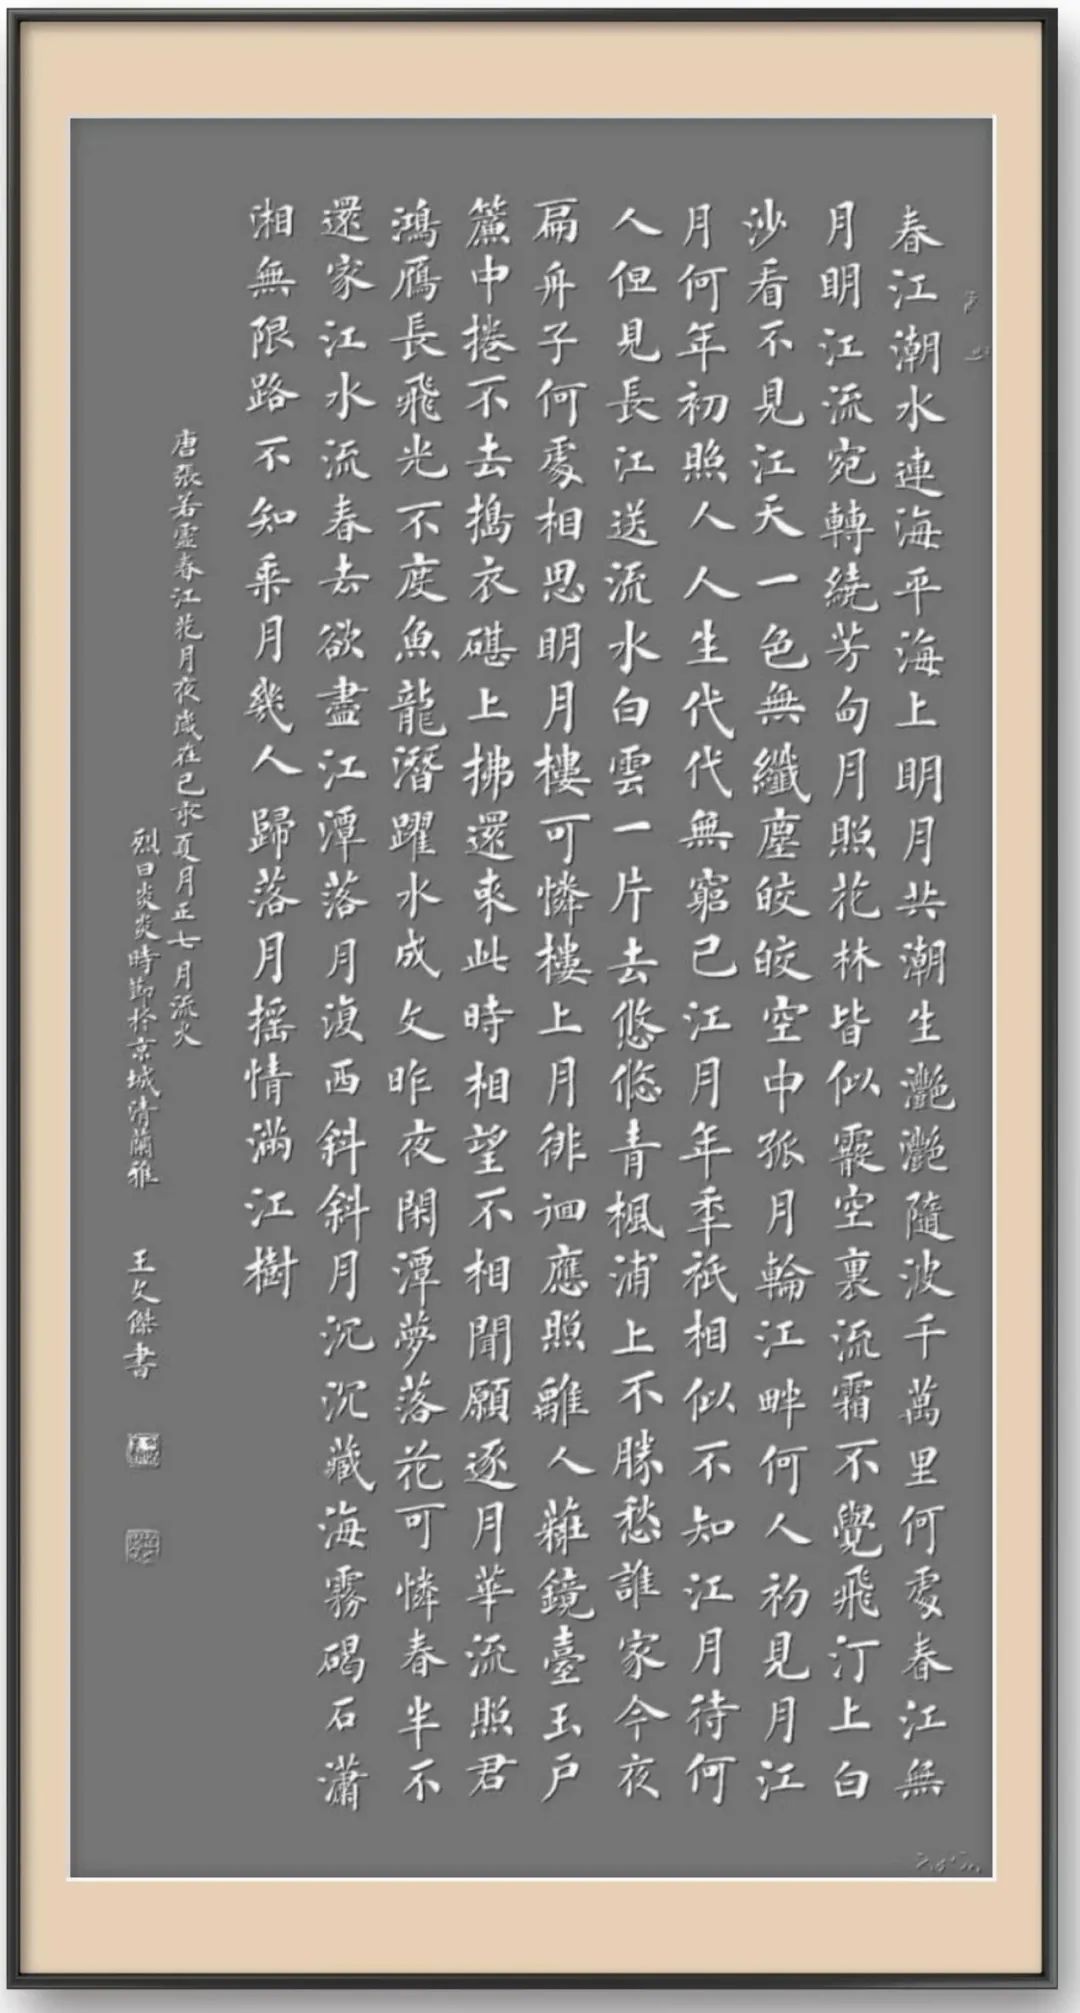 春江潮水連海平海上明月共潮生灎灎隨波千萬里何處春江無
月明江流宛轉繞芳甸月照花林皆似霰空裏流霜不覺飛汀上白
沙看不見江天一色無纖塵皎皎空中孤月輪江畔何人初見月江
月何年初照人人生代代無窮已江月年年祇相似不知江月待何
人但見長江送流水白雲一片去悠悠青楓浦上不勝愁誰家今夜
扁舟子何處相思明月樓可憐樓上月徘徊應照離人糚鏡臺玉戶
簾中捲不去搗衣碪上拂還來此時相望不相聞願逐月華流照君
鴻鴈長飛光不度魚龍潛躍水成文昨夜閑潭夢落花可憐春半不
還家江水流春去欲盡江潭落月復西斜斜月沉沉藏海霧碣石瀟
湘無限路不知乘月幾人歸落月搖情滿江樹
唐張若虛春江花月夜歲在己亥夏月正七月流火
烈日炎炎時節於京城清蘭雅 王文傑書